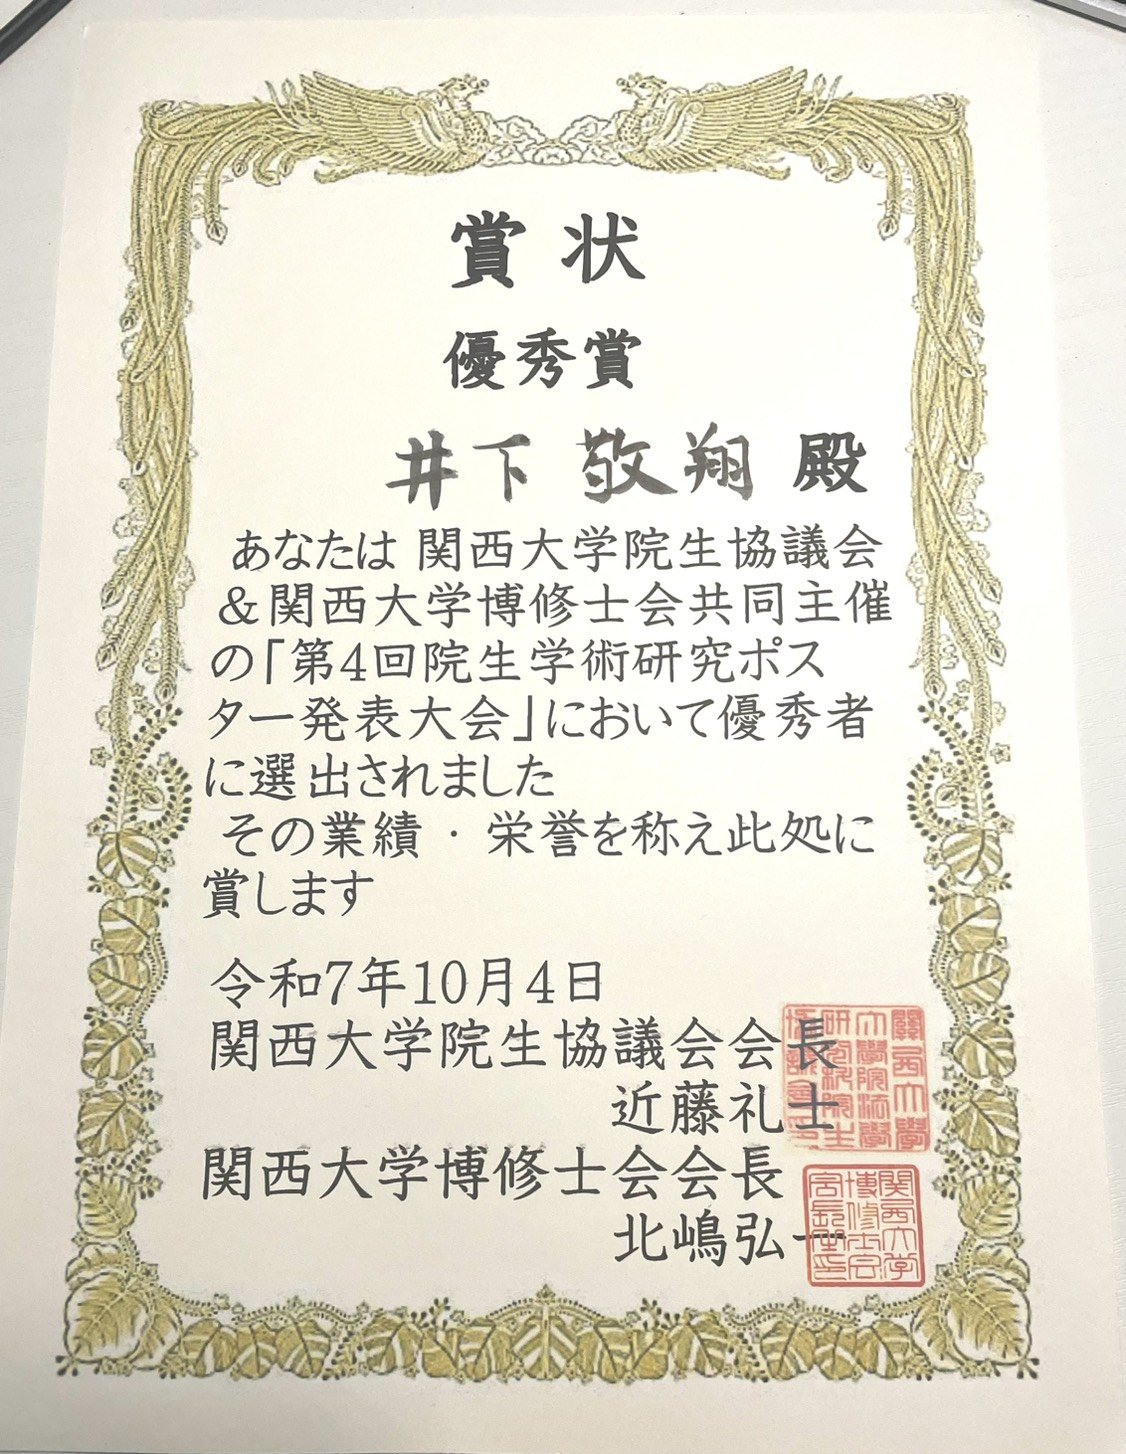 賞状
優秀賞
井下 敬翔 殿
あなたは 関西大学院生協議会
&関西大学博修士会共同主催
の「第4回院生学術研究ポス
ター発表大会」において優秀者
に選出されました
その業績・栄誉を称え此処に
賞します
令和7年10月4日
関西大学院生協議会会長
近藤礼士
関西大学博修士会会長
北嶋弘一
關西大學
大學院法學
研究科院生
協議會印
関西大学
博修士会
会長之印